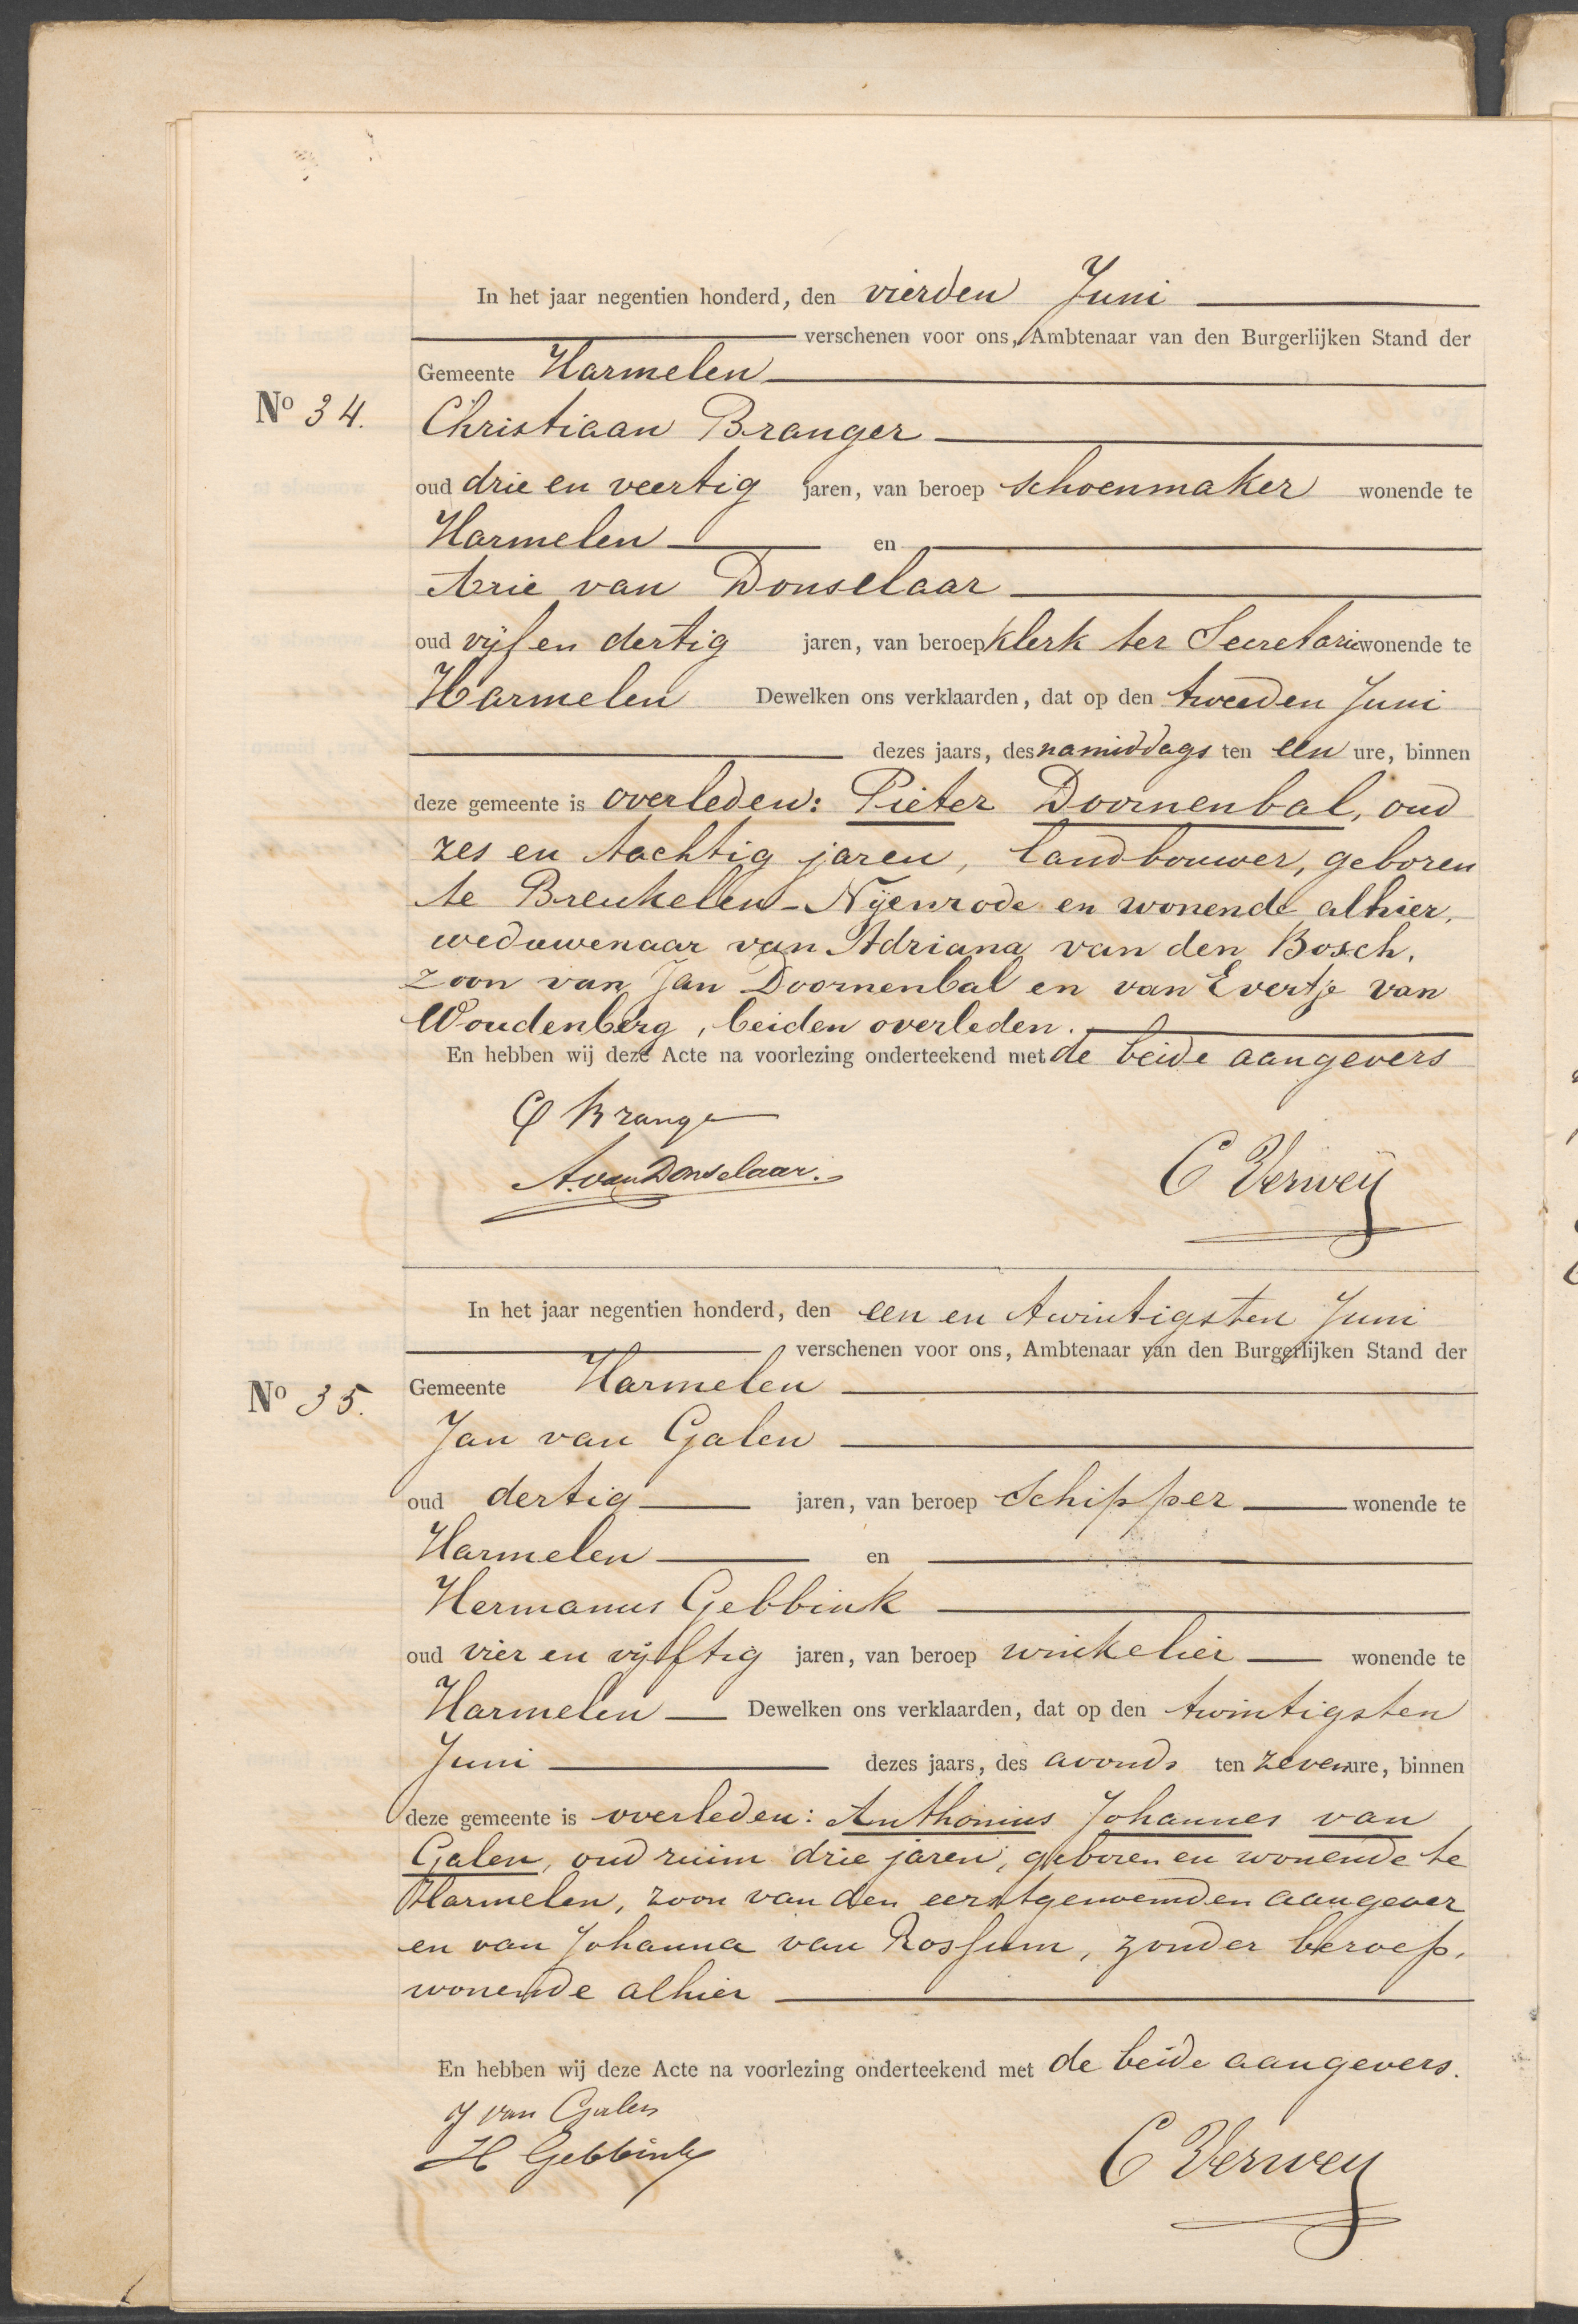 In het jaar negentien honderd, den vierden Juni
verschenen voor ons, Ambtenaar van den Burgerlijken Stand der
Gemeente Harmelen
No 34.
Christiaan Branger
oud drie en veertig jaren, van beroep schoenmaker wonende te
Harmelen en
Arie van Donselaar
oud vijf en dertig jaren, van beroep klerk ter Secretarie wonende te
Harmelen Dewelken ons verklaarden, dat op den tweeden Juni
dezes jaars, des namiddags ten een ure, binnen
deze gemeente is overleden: Pieter Doornenbal, oud
zes en tachtig jaren, landbouwer, geboren
te Breukelen-Nijenrode en wonende alhier,
weduwenaar van Adriana van den Bosch,
zoon van Jan Doornenbal en van Evertje van
Woudenberg, beiden overleden.
En hebben wij deze Acte na voorlezing onderteekend met de beide aangevers
C Branger
A. van Donselaar.
C Verweij
In het jaar negentien honderd, den een en twintigsten Juni
verschenen voor ons, Ambtenaar van den Burgerlijken Stand der
No 35.
Gemeente Harmelen
Jan van Galen
oud dertig jaren, van beroep Schipper wonende te
Harmelen en
Hermanus Gebbink
oud vier en vijftig jaren, van beroep winkelier wonende te
Harmelen Dewelken ons verklaarden, dat op den twintigsten
Juni dezes jaars, des avonds ten zeven ure, binnen
deze gemeente is overleden: Anthonius Johannes van
Galen, oud ruim drie jaren, geboren en wonende te
Harmelen, zoon van den eerstgenoemden aangever
en van Johanna van Rossum, zonder beroep,
wonende alhier
En hebben wij deze Acte na voorlezing onderteekend met de beide aangevers.
J van Galen
H Gebbink
C Verweij